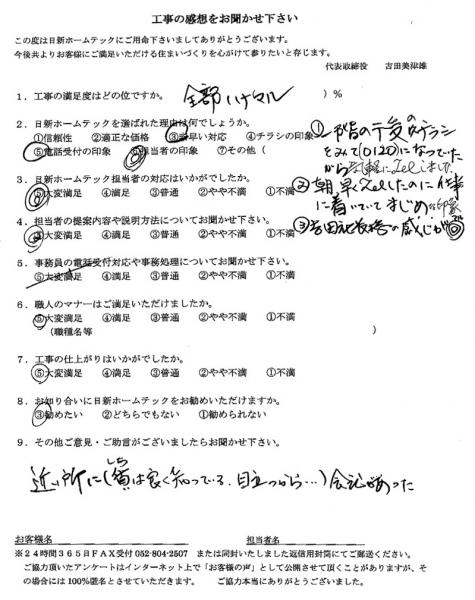 工事の感想をお聞かせ下さい
この度は日新ホームテックにご用命下さいましてありがとうございます。
今後共よりお客様にご満足いただける住まいづくりを心がけて参りたいと存じます。
代表取締役 吉田美津雄
1．工事の満足度はどの位ですか。 全部ハナマル )％
2．日新ホームテックを選ばれた理由は何でしょうか。
①信頼性 ②適正な価格 ③素早い対応 ④チラシの印象
⑤電話受付の印象 ⑥担当者の印象 ⑦その他（
①
をみて(0120)になっていた
から気軽にTelしました
②朝早くTelしたのに仕事
に着いていてまじめな印象
③吉田社長の感じが
3．日新ホームテック担当者の対応はいかがでしたか。
⑤大変満足 ④満足 ③普通 ②やや不満
4．担当者の提案内容や説明方法についてお聞かせ下さい。
⑤大変満足 ④満足 ③普通 ②やや不満
5．事務員の電話受付対応や事務処理についてお聞かせ下さい。
⑤大変満足 ④満足 ③普通 ②やや不満 ①不満
6．職人のマナーはご満足いただけましたか。
⑤大変満足 ④満足 ③普通 ②やや不満 ①不満
（職種名等 ）
7．工事の仕上がりはいかがでしたか。
⑤大変満足 ④満足 ③普通 ②やや不満 ①不満
8．お知り合いに日新ホームテックをお勧めいただけますか。
③勧めたい ②どちらでもない ①勧められない
9．その他ご意見・ご助言がございましたらお聞かせ下さい。
近い所に(質は良く知っている、目立つから…)会社があった
お客様名 担当者名
※24時間365日FAX受付 052-804-2507 または同封いたしました返信用封筒にてご郵送ください。
ご協力頂いたアンケートはインターネット上で「お客様の声」として公開させて頂くことがありますが、そ
の場合には100％匿名とさせていただきます。 ご協力本当にありがとうございました。